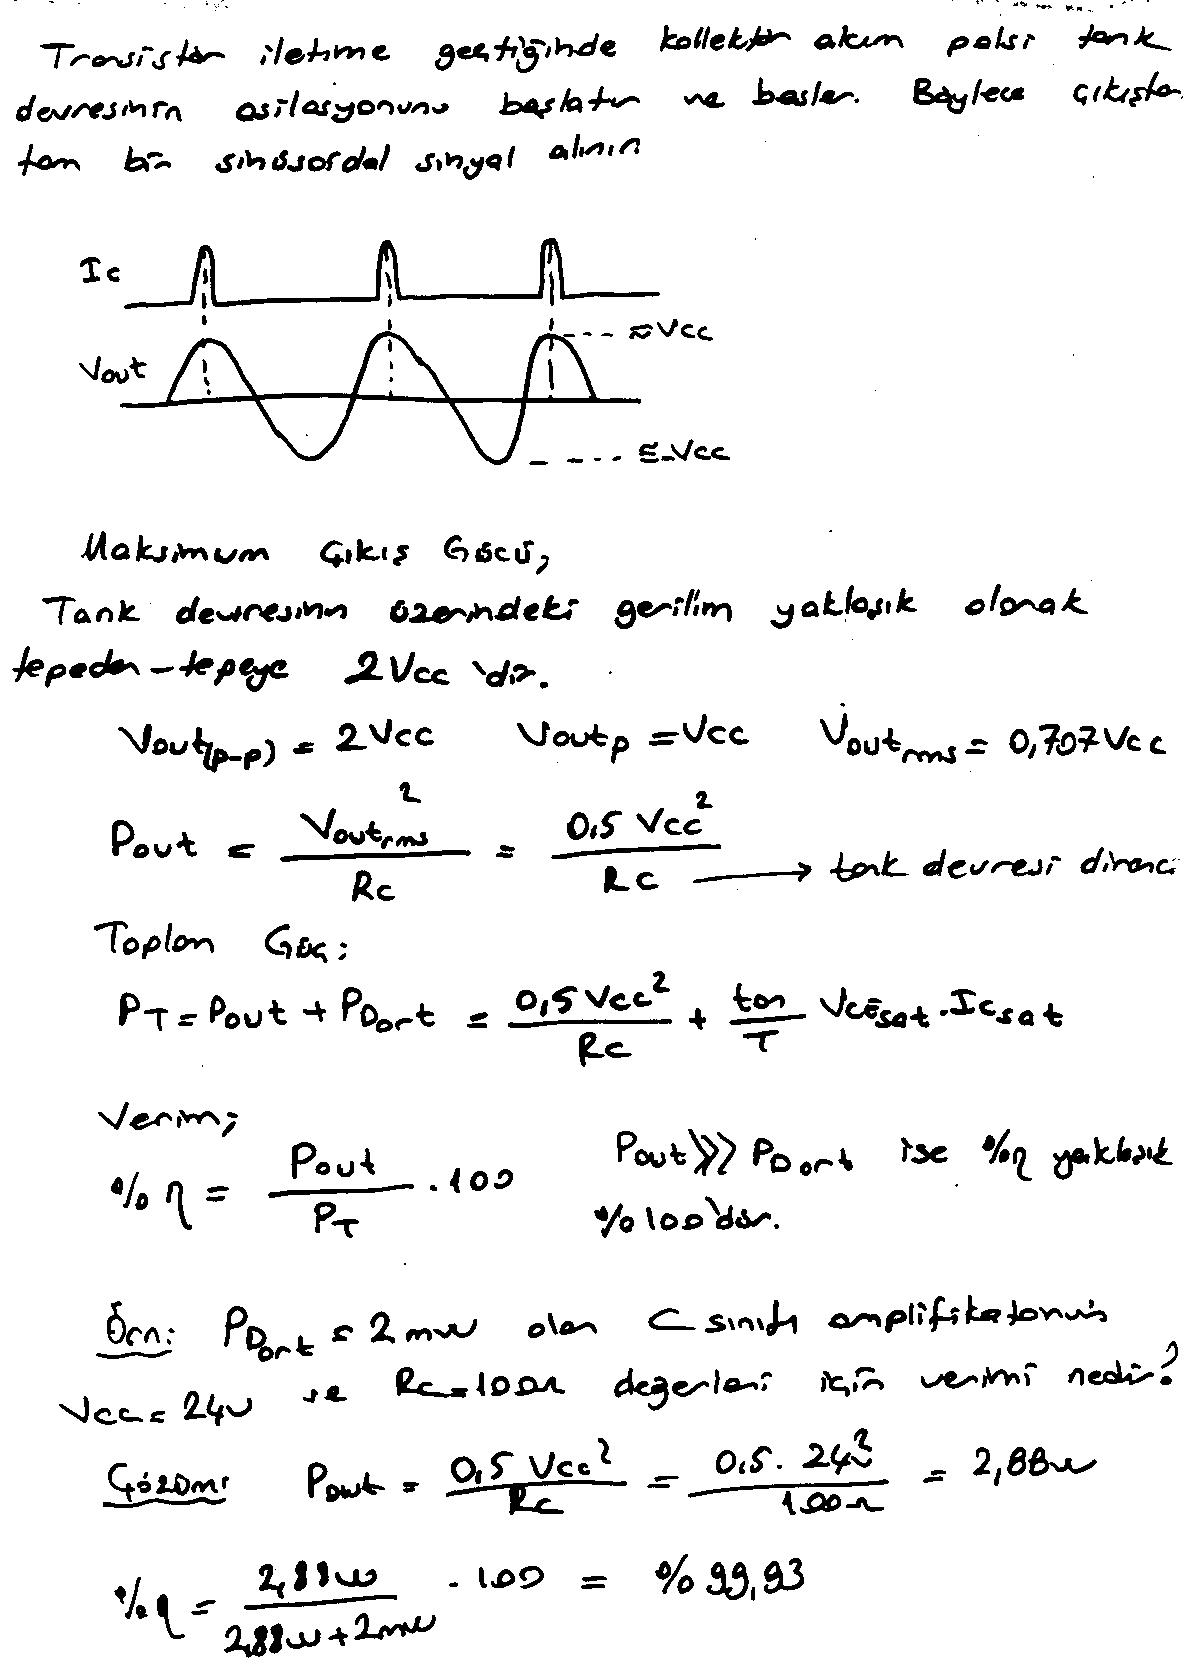 Transistör iletime geçtiğinde kollektör akım palsi tank
devresinin osilasyonunu başlatır ve besler. Böylece çıkışta
tam bir sinüsoidal sinyal alınır
Ic
≈Vcc
Vout
≅-Vcc
Maksimum Çıkış Gücü,
Tank devresinin üzerindeki gerilim yaklaşık olarak
tepeden-tepeye 2Vcc 'dir.
Vout(p-p) = 2Vcc Voutp = Vcc Voutrms = 0,707Vcc
Pout = Voutrms² / Rc = 0.5 Vcc² / Rc → tank devresi direnci
Toplam Güç:
PT = Pout + PDort = 0,5 Vcc² / Rc + ton / T VCEsat . Icsat
Verim;
%η = Pout / PT . 100 Pout >>> PDort ise %η yaklaşık
%100'dür.
Örn: PDort = 2mW olan C sınıfı amplifikatörün
Vcc = 24v ve Rc = 100Ω değerleri için verimi nedir?
Çözüm: Pout = 0,5 Vcc² / Rc = 0.5 . 24² / 100Ω = 2,88w
%η = 2,88w / 2,88w + 2mw . 100 = %99,93